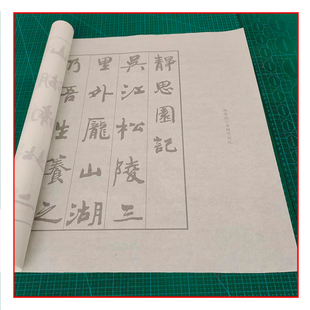 靜思園記
吳江松陵三
里外龐山湖
乃吾生養之